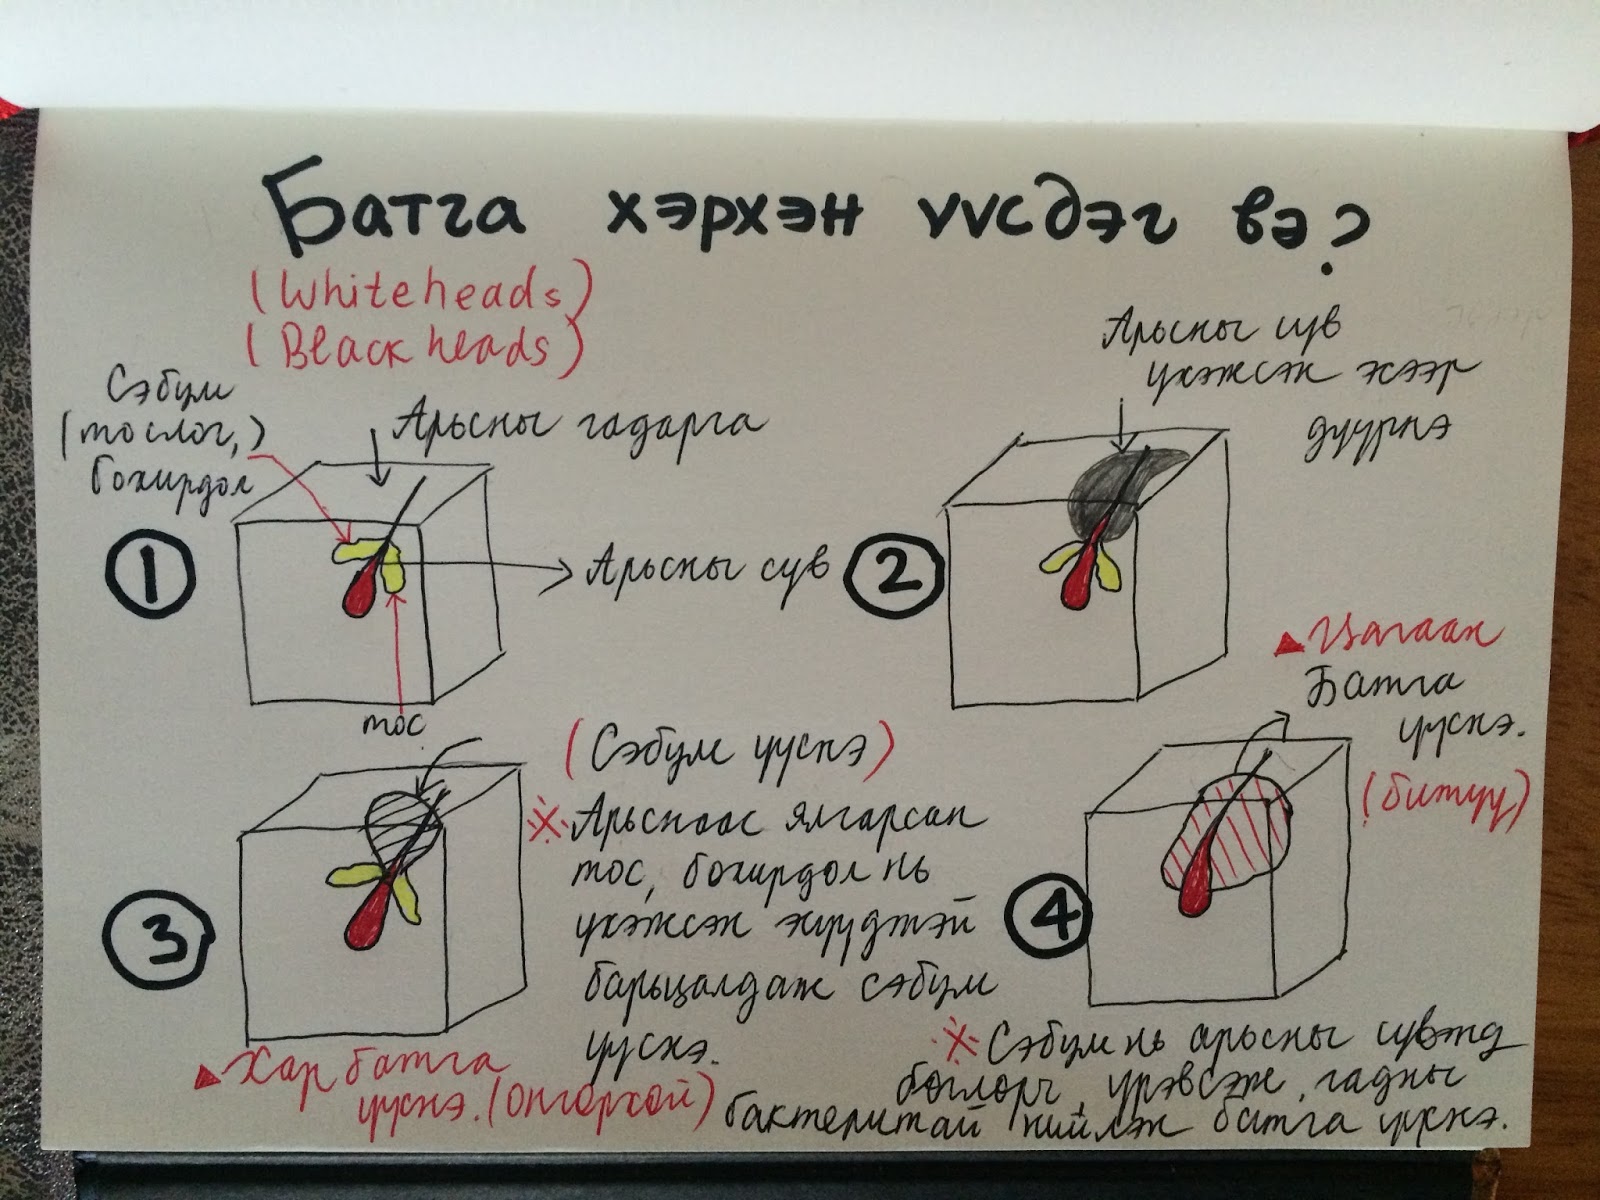 Батга хэрхэн үүсдэг вэ?
(Whiteheads)
(Blackheads)
Сэбум
(тослог,)
бохирдол
Арьсны гадарга
1
Арьсны сүв
тос
Арьсны сүв
үхэжсэн эсээр
дүүрнэ
2
(Сэбум үүснэ)
※ Арьснаас ялгарсан
тос, бохирдол нь
үхэжсэн эсүүдтэй
барьцалдаж сэбум
үүснэ.
3
▲ Хар батга
үүснэ. (онгорхой)
▲ Цагаан
Батга
үүснэ.
(битүү)
4
※ Сэбум нь арьсны сүвэнд
бөглөрч, үрэвсэж, гадны
бактеритай нийлэн батга үүснэ.